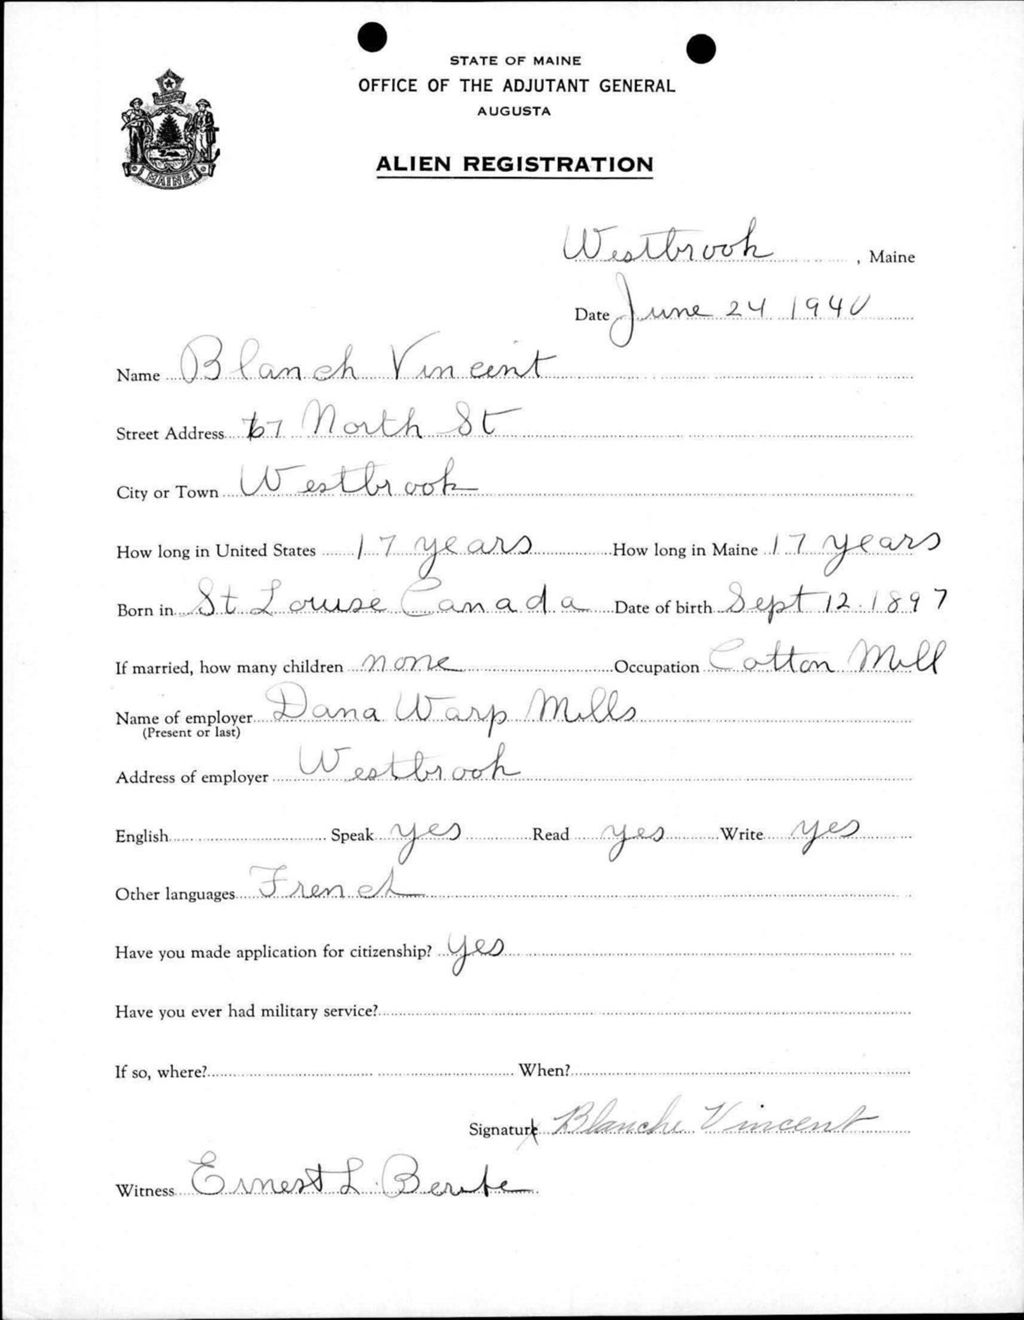 STATE OF MAINE
OFFICE OF THE ADJUTANT GENERAL
AUGUSTA
ALIEN REGISTRATION
MAINE
Westbrook, Maine
Date June 24 1940
Name Blanch Vincent
Street Address 67 North St
City or Town Westbrook
How long in United States 17 years How long in Maine 17 years
Born in St Louise Canada Date of birth Sept 12. 1897
If married, how many children none Occupation Cotton Mill
Name of employer Dana Warp Mills
(Present or last)
Address of employer Westbrook
English Speak yes Read yes Write yes
Other languages French
Have you made application for citizenship? yes
Have you ever had military service?
If so, where? When?
Signature Blanche Vincent
Witness Ernest L. Berube